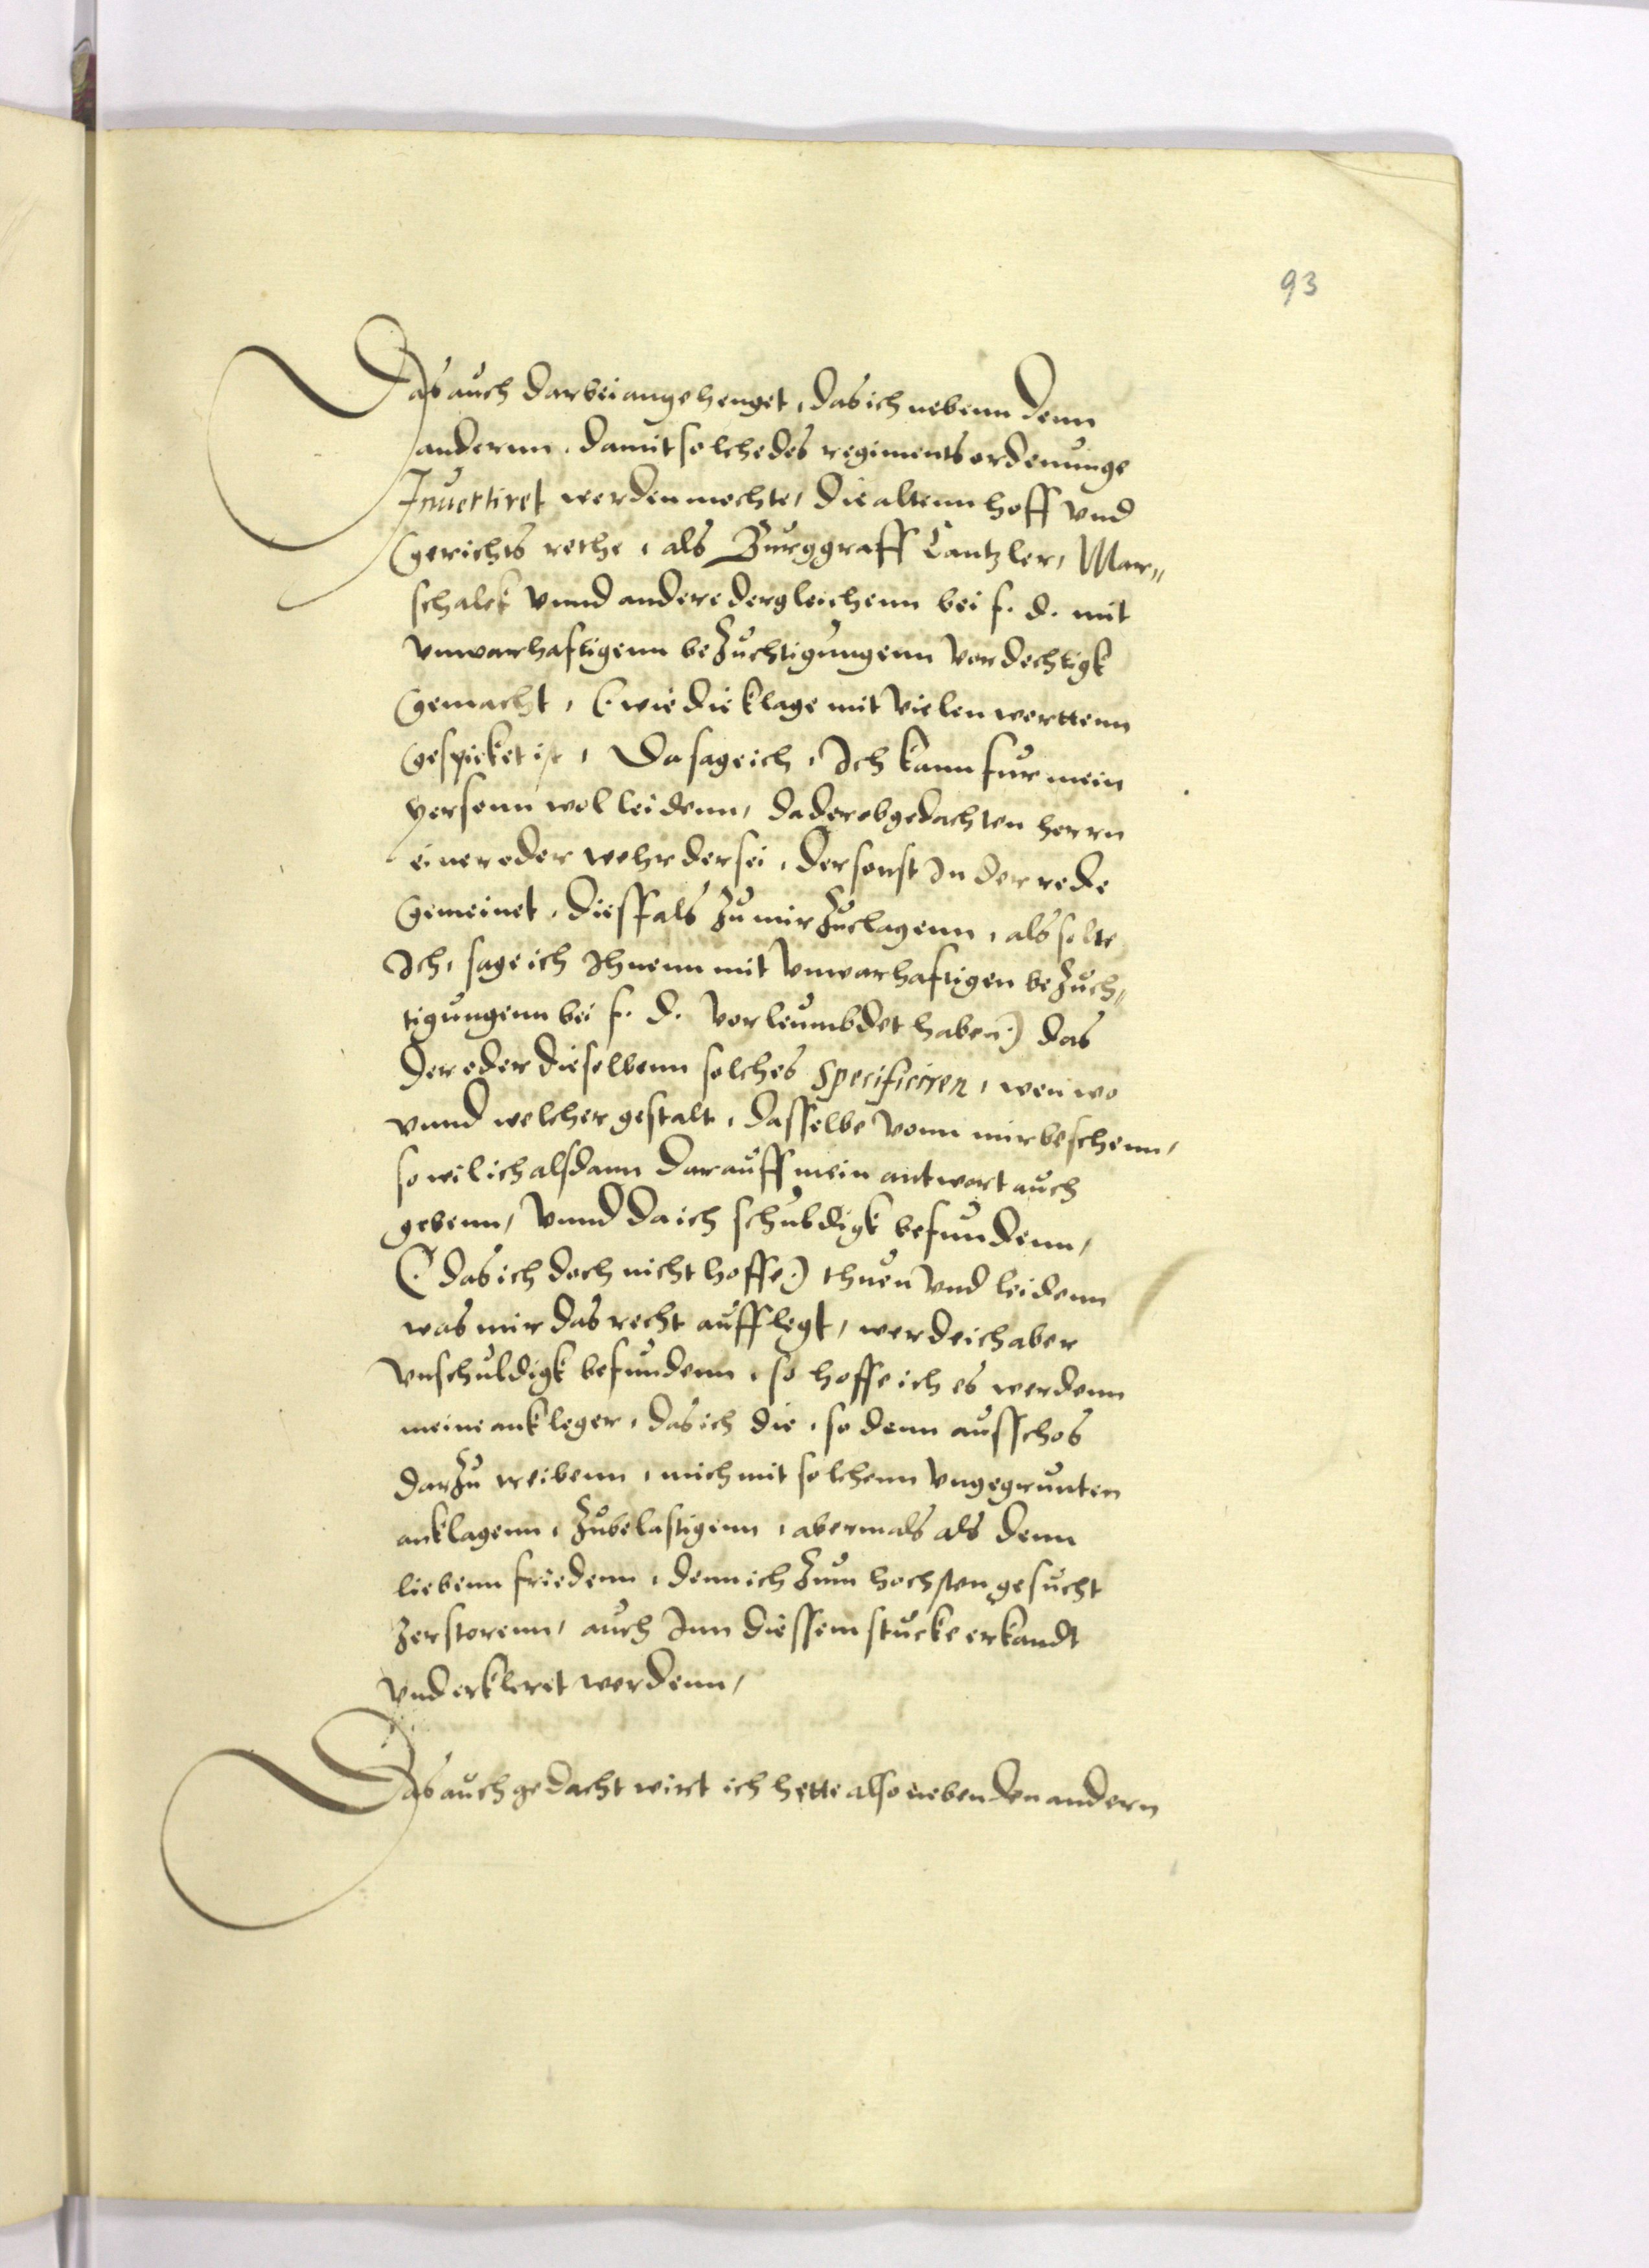 93
Das auch darbei angehenget, das ich nebenn denn
anderun, damit solche des regiments ordenunge
Invertiret werden mochte, die altenn hoff vnd
gerichts rethe, als Burggraff Cantzler, Mar„
schalck vnnd andere dergleichenn bei f. d. mit
vnwarhaftigenn bezuchtigungenn vordechtigk
gemacht, (wie die klage mit vielen worttenn
gespicket ist, Da sage ich, Ich kann fur mein
person wol leidenn, da der obgedachten herrn
einer oder wehr der sei, der sonst In der rede
gemeinet, diessfals zu mir zuclagenn, als solte
Ich, sage ich Ihnenn mit vnwarhaftigen bezuch„
tigungenn bei f. d. vorleumbdet haben) das
Der oder dieselbenn solches Specificiren, wen wo
vnnd welcher gestalt, dasselbe vonn mir beschenn,
so wil ich alsdann darauff mein antwort auch
gebenn, vnnd da ich schuldigk befundenn,
(das ich doch nicht hoffe) thuen vnd leidenn
was mir das recht aufflegt, werde ich aber
vnschuldigk befundenn, so hoffe ich es werdenn
meine ankleger, das ich die, so denn ausschos
darzu treibenn, mich mit solchenn vngegrunten
anklagenn, zubelastigenn, abermals als denn
liebenn friedenn, denn ich zum hochsten gesucht
zerstorenn, auch Inn diessem stucke erkandt
vnd erkleret werdenn,
Das auch gedacht wirt ich hette also neben den andern